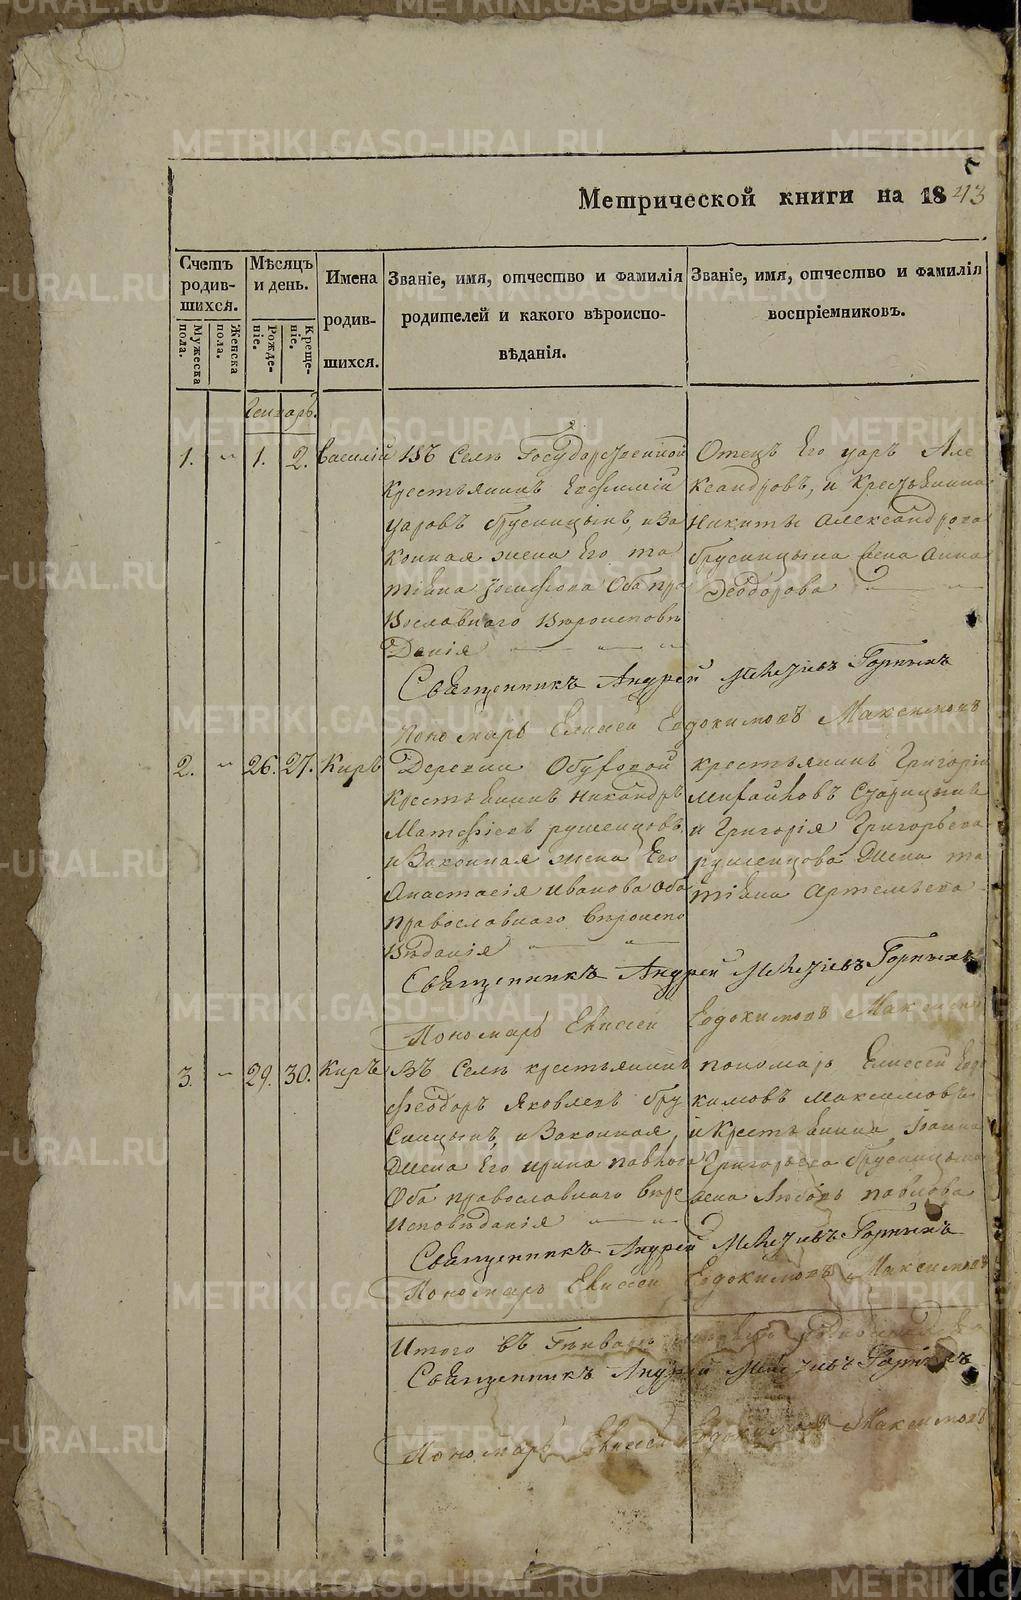 METRIKI.GASO-URAL.RU
Метрической книги на 1843
Счетъ родившихся.
Мужеска пола.
Женска пола.
Мѣсяцъ и день.
Рожденіе.
Крещеніе.
Имена родившихся.
Званіе, имя, отчество и фамилія
родителей и какого вѣроиспо-
вѣданія.
Званіе, имя, отчество и фамилія
воспріемниковъ.
Генварь.
1. 1. 2. Василій
Въ Селѣ Государственной
крестьянинъ
уаровъ Брусницынъ, и За
конная жена Его та
тіяна Обапра
вославнаго Вѣроисповѣ
Данія
Отецъ Его уаръ Але
ксандровъ, и крестьянина
Никиты Александрова
Брусницына жена Анна
Феодорова
Священникъ Андрей
Пономарь Елисей Евдокимовъ Максимовъ
2. 26. 27. Киръ
Деревни
крестьянинъ никандръ
и Законная жена Его
Анастасія Иванова Оба
православнаго Вѣроиспо
Вѣданія
крестьянинъ Григорій
Михайловъ
и Григорія Григорьева
жена та
тіяна Артемьева
Священникъ Андрей
Пономарь Елисей Евдокимовъ
3. 29. 30. Киръ
Въ Селѣ крестьянинъ
Феодоръ Яковлевъ Бру
сницынъ, и Законная,
жена Его ирина павлова
Оба православнаго Вѣро
Исповѣданія
пономарь Елисей Евдо
кимовъ Максимовъ
и Крестьянина Іоанна
Григорьева Брусницына
жена Любовь павлова
Священникъ Андрей
Пономарь Елисей Евдокимовъ Максимовъ
Итого въ Генварѣ
Священникъ Андрей
Пономарь Елисей Евдокимовъ Максимовъ